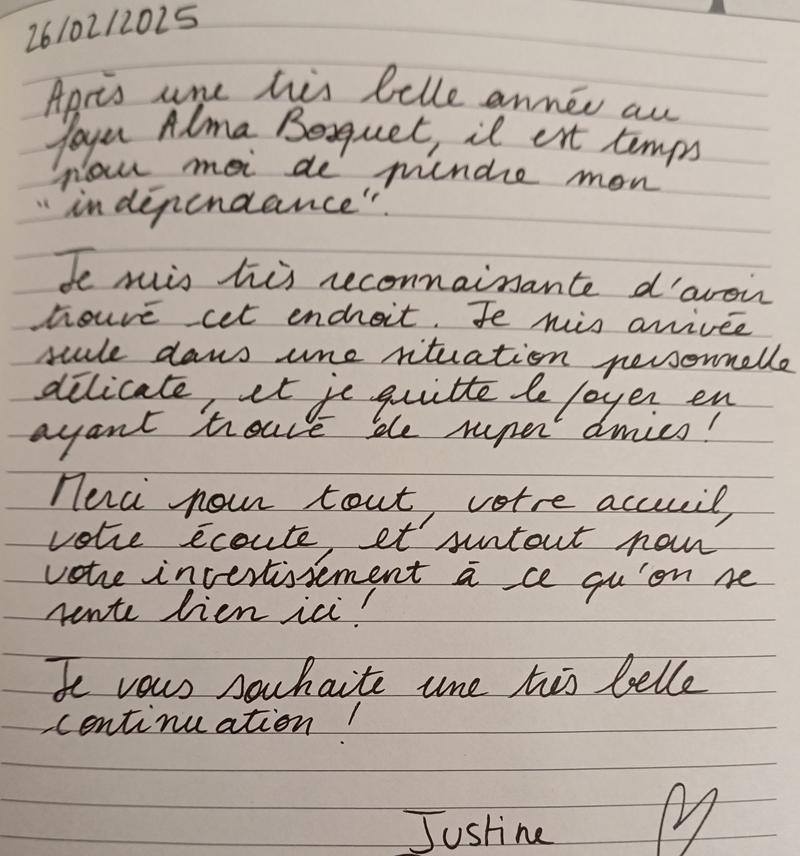 26/02/2025
Après une très belle année au
foyer Alma Bosquet, il est temps
pour moi de prendre mon
"indépendance".
Je suis très reconnaissante d'avoir
trouvé cet endroit. Je suis arrivée
seule dans une situation personnelle
délicate, et je quitte le foyer en
ayant trouvé de super amies !
Merci pour tout, votre accueil,
votre écoute, et surtout pour
votre investissement à ce qu'on se
sente bien ici !
Je vous souhaite une très belle
continuation !
Justine